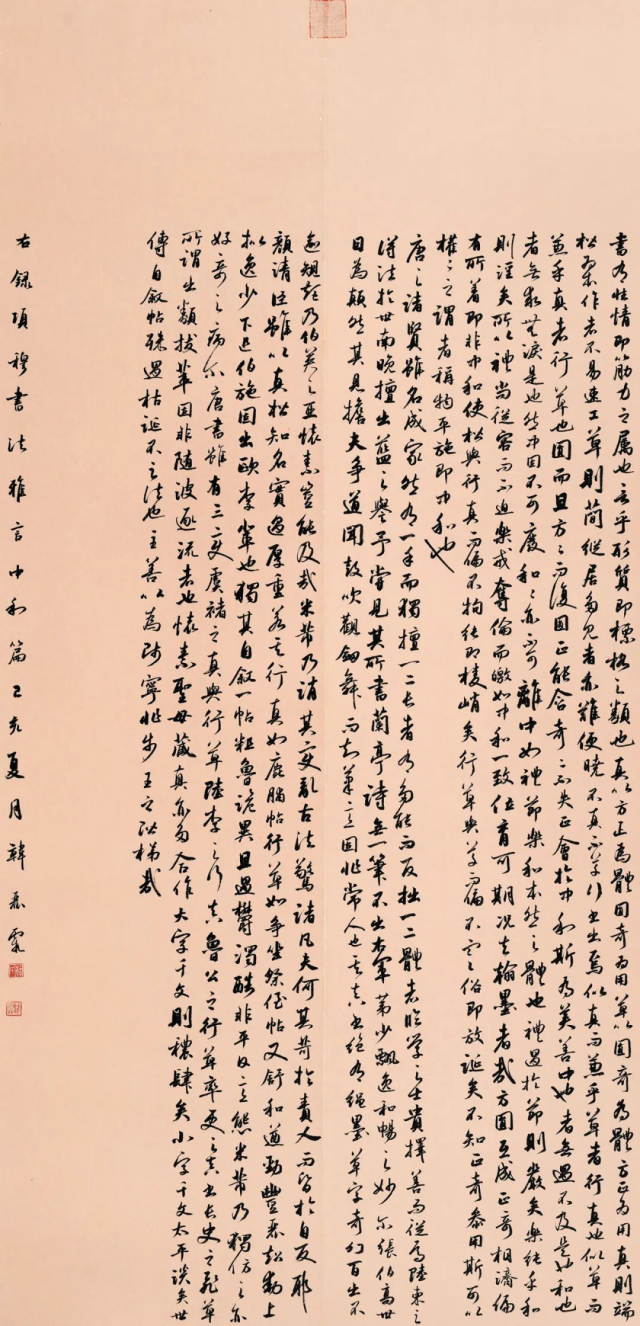 書有性情即筋力之屬也言乎形質即標格之類也真以方正為體圓奇為用草以圓奇為體方正為用真則端
楷為本作者不易速工草則簡縱居多見者亦難便曉不真不草行書出焉似真而兼乎草者行真也似草而
兼乎真者行草也圓而且方方而復圓正能含奇奇不失正會於中和斯為美善中也者無過不及是也和也
者無乖無淚是也然中固不可廢和和亦不可離中如禮節樂和本然之體也禮過於節則嚴矣樂純乎和
則淫矣所以禮尚從容而不迫樂戒奪倫而皦如中和一致位育可期況夫翰墨者哉方圓互成正奇相濟偏
有所着即非中和使楷與行真而偏不拘純即棱峭矣行草與草而偏不寒俗即放誕矣不知正奇參用斯可以
權權之謂者稱物平施即中和也
唐之諸賢雖名成家然有一手而獨擅一二長者有多能而反拙一二體者臨學之士貴擇善而從焉陸柬之
得法於世南晚擅出藍之譽予嘗見其所書蘭亭詩無一筆不出右軍第少飄逸和暢之妙尔張伯高世
目為顛然其見擔夫爭道聞鼓吹觀劍舞而知筆意固非常人也其真書絕有繩墨草字奇幻百出不
逾規矩乃伯英之亞懷素豈能及哉米芾乃誚其變亂古法驚諸凡夫何其苛於責人而昧於自反耶
顏清臣雖以真楷知名實過厚重若其行真如鹿脯帖行草如爭坐祭侄帖又舒和遒勁豐麗超動上
擬逸少下追伯施固出歐李輩也獨其自叙一帖粗魯詭異且過鬱濁酷非平日意態米芾乃獨仿之亦
好奇之病尔唐書雖有三變虞褚之真與行草陸李之行真魯公之行草率更之真書長史之飛草
所謂出類拔萃固非隨波逐流者也懷素聖母藏真亦多合作大字千文則穠肆矣小字千文太平淡矣世
傳自叙帖殊過枯誕不足法也主善以為師寧非步王之階梯哉
右錄項穆書法雅言中和篇己亥夏月韓霖